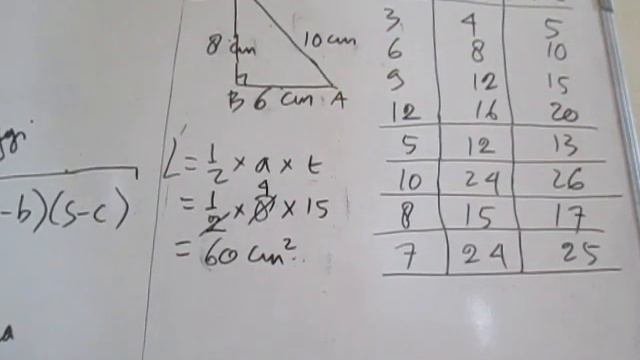 8 cm 10 cm
B 6 cm A
L = 1/2 × a × t
= 1/2 × 8 × 15 4
= 60 cm².
-b)(s-c)
a
3 4 5
6 8 10
9 12 15
12 16 20
5 12 13
10 24 26
8 15 17
7 24 25